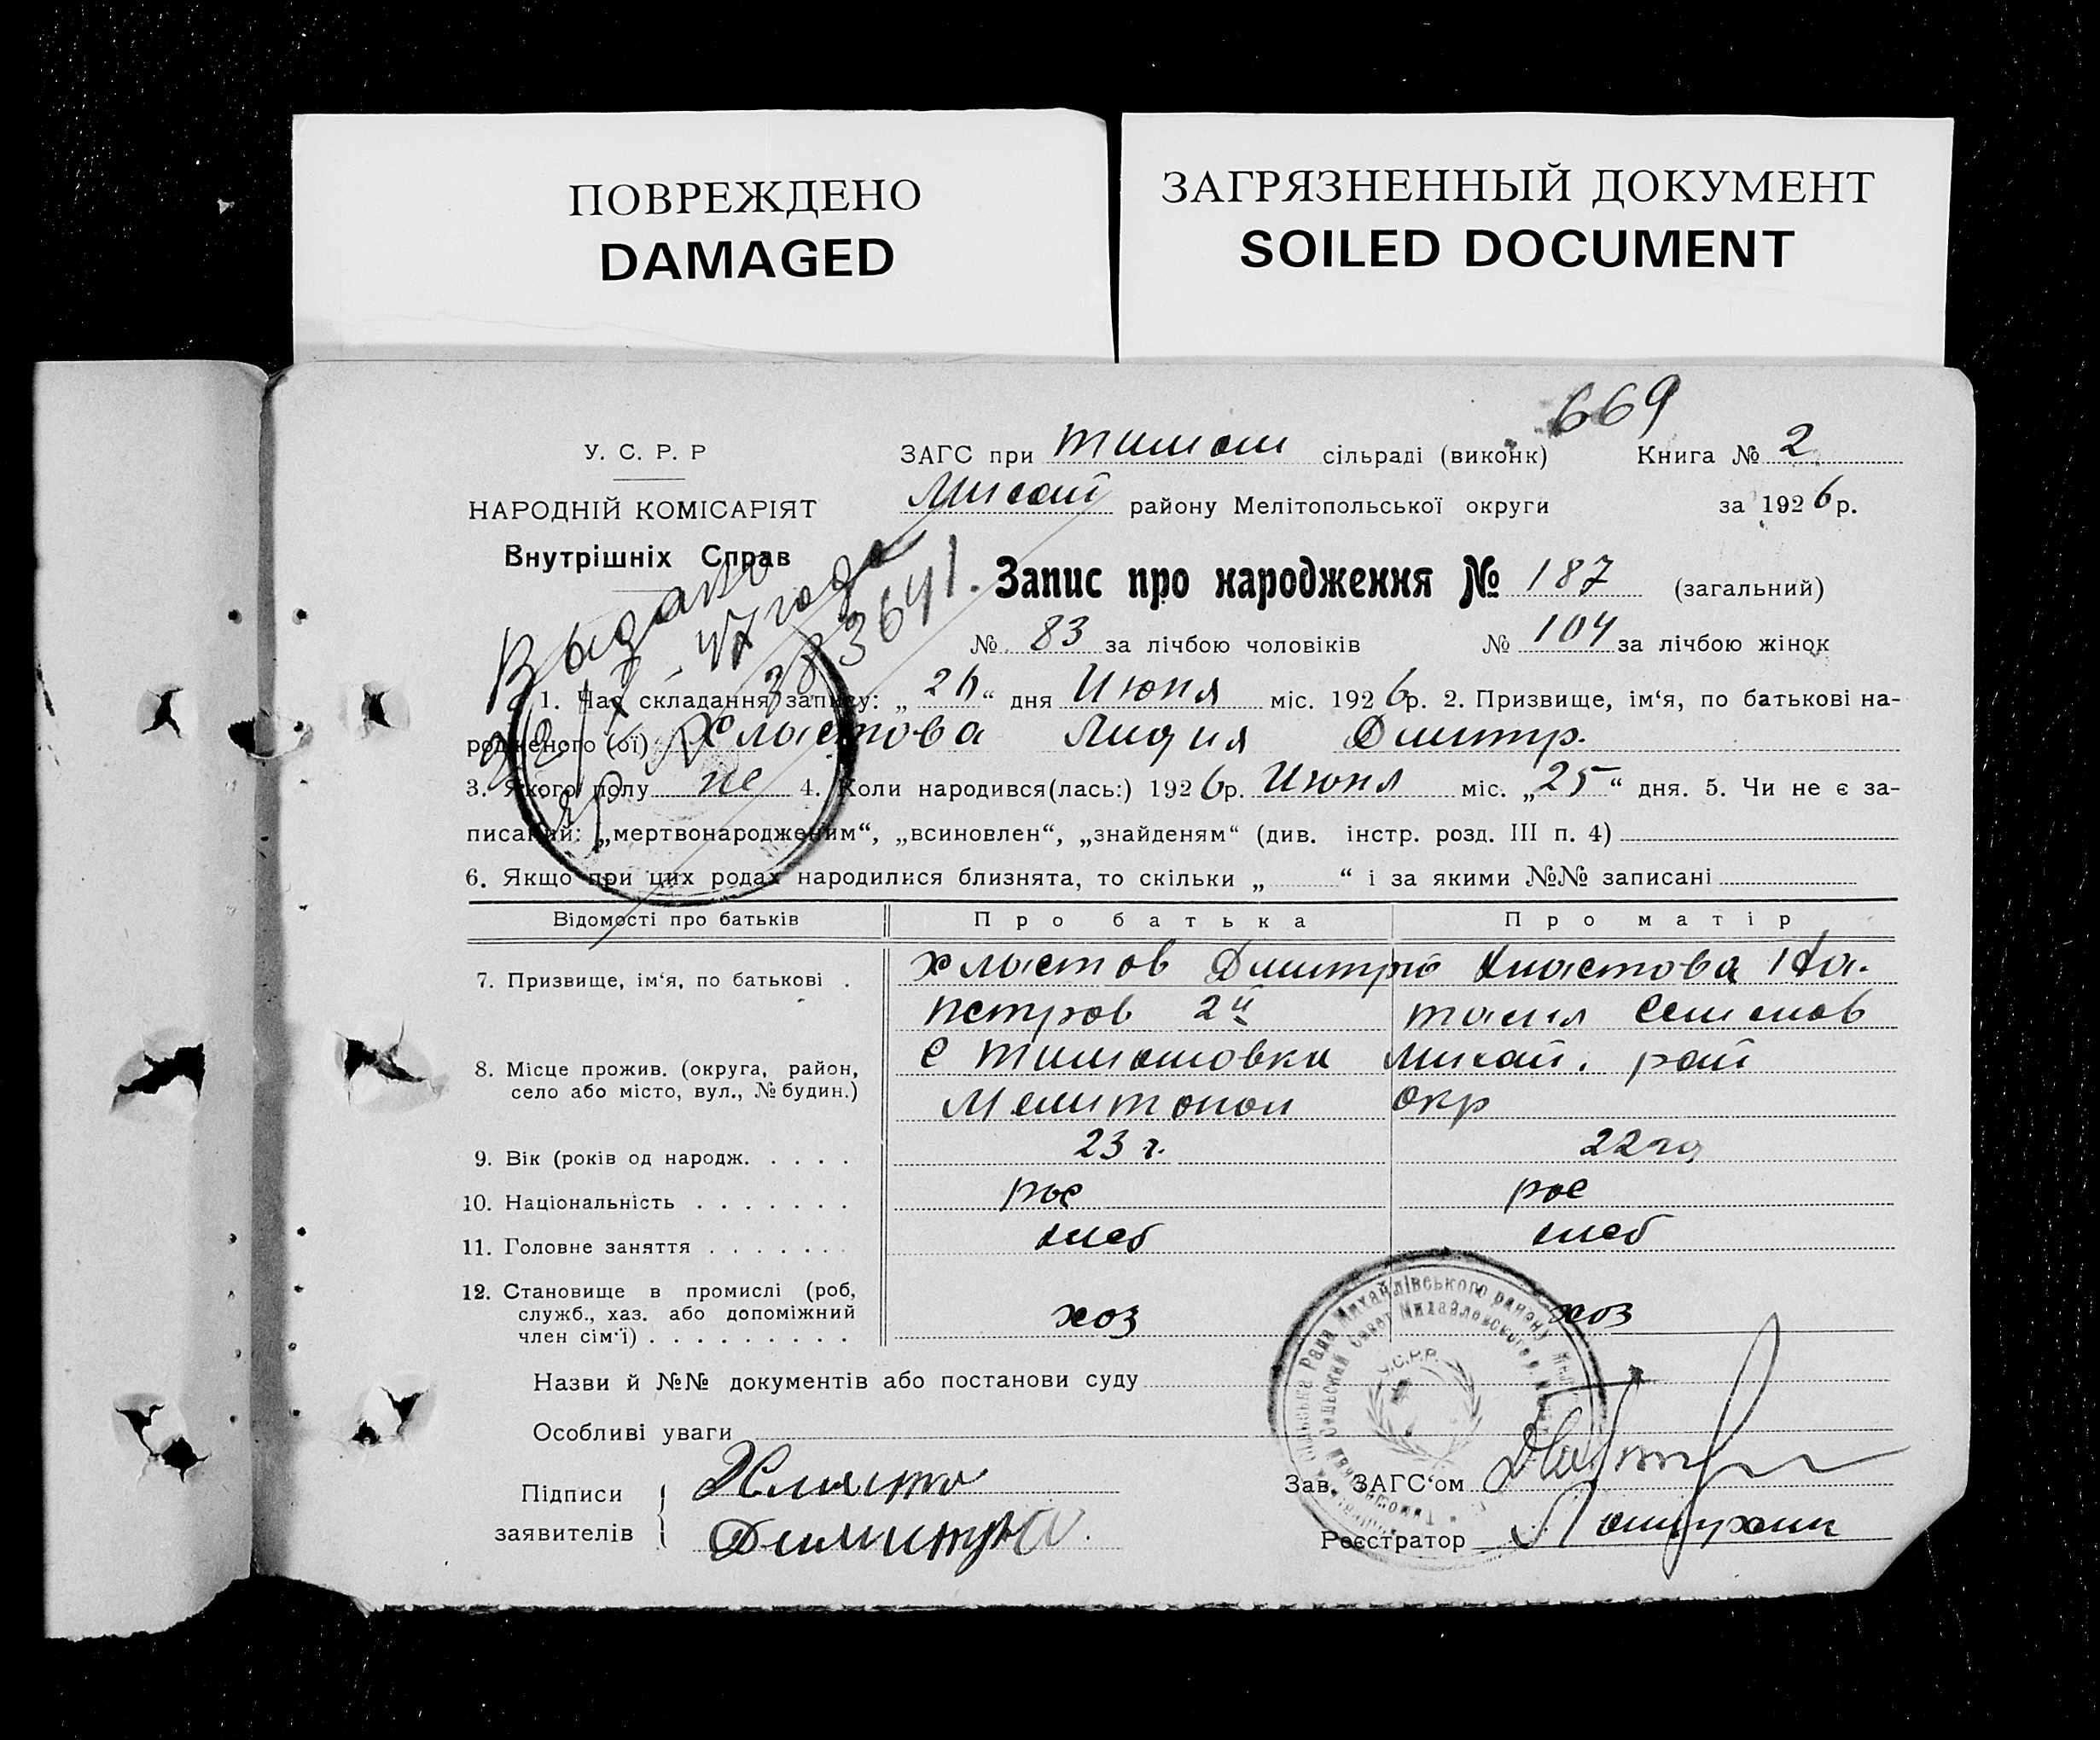 ПОВРЕЖДЕНО
DAMAGED
ЗАГРЯЗНЕННЫЙ ДОКУМЕНТ
SOILED DOCUMENT
669
У. С. Р. Р
НАРОДНІЙ КОМІСАРІЯТ
Внутрішніх Справ
ЗАГС при Тимош сільраді (виконк) Книга № 2
Михай району Мелітопольської округи за 1926р.
Запис про народження № 187 (загальний)
№ 83 за лічбою чоловіків № 104 за лічбою жінок
Выдано
47 года
1. Час складання запису: „26“ дня Июня міс. 1926р. 2. Призвище, ім‘я, по батькові на-
родженого (ої) Хластова Лидия Дмитр.
3. Якого полу же 4. Коли народився(лась:) 1926р. Июня міс. „25“ дня. 5. Чи не є за-
писаний: „мертвонародженим“, „всиновлен“, „знайденям“ (див. інстр. розд. III п. 4)
6. Якщо при цих родах народилися близнята, то скільки „ “ і за якими №№ записані
Відомості про батьків Про батька Про матір
7. Призвище, ім‘я, по батькові . Хластов Дмитрий Хластова На-
Петров 2й талия Семенов
8. Місце прожив. (округа, район, село або місто, вул., № будин.) С Тимошовка Михай. рай
Мелитопол окр
9. Вік (років од народж. . . . . 23 г. 22 го
10. Національність . . . . . . . рос рос
11. Головне заняття . . . . . . . хлеб хлеб
12. Становище в промислі (роб, служб., хаз. або допоміжний член сім‘ї) . . . . . . . . . хоз хоз
Назви й №№ документів або постанови суду
Особливі уваги
Підписи
заявителів
Зав. ЗАГС‘ом
Реєстратор
Рада Михайлівського району
У.С.Р.Р.